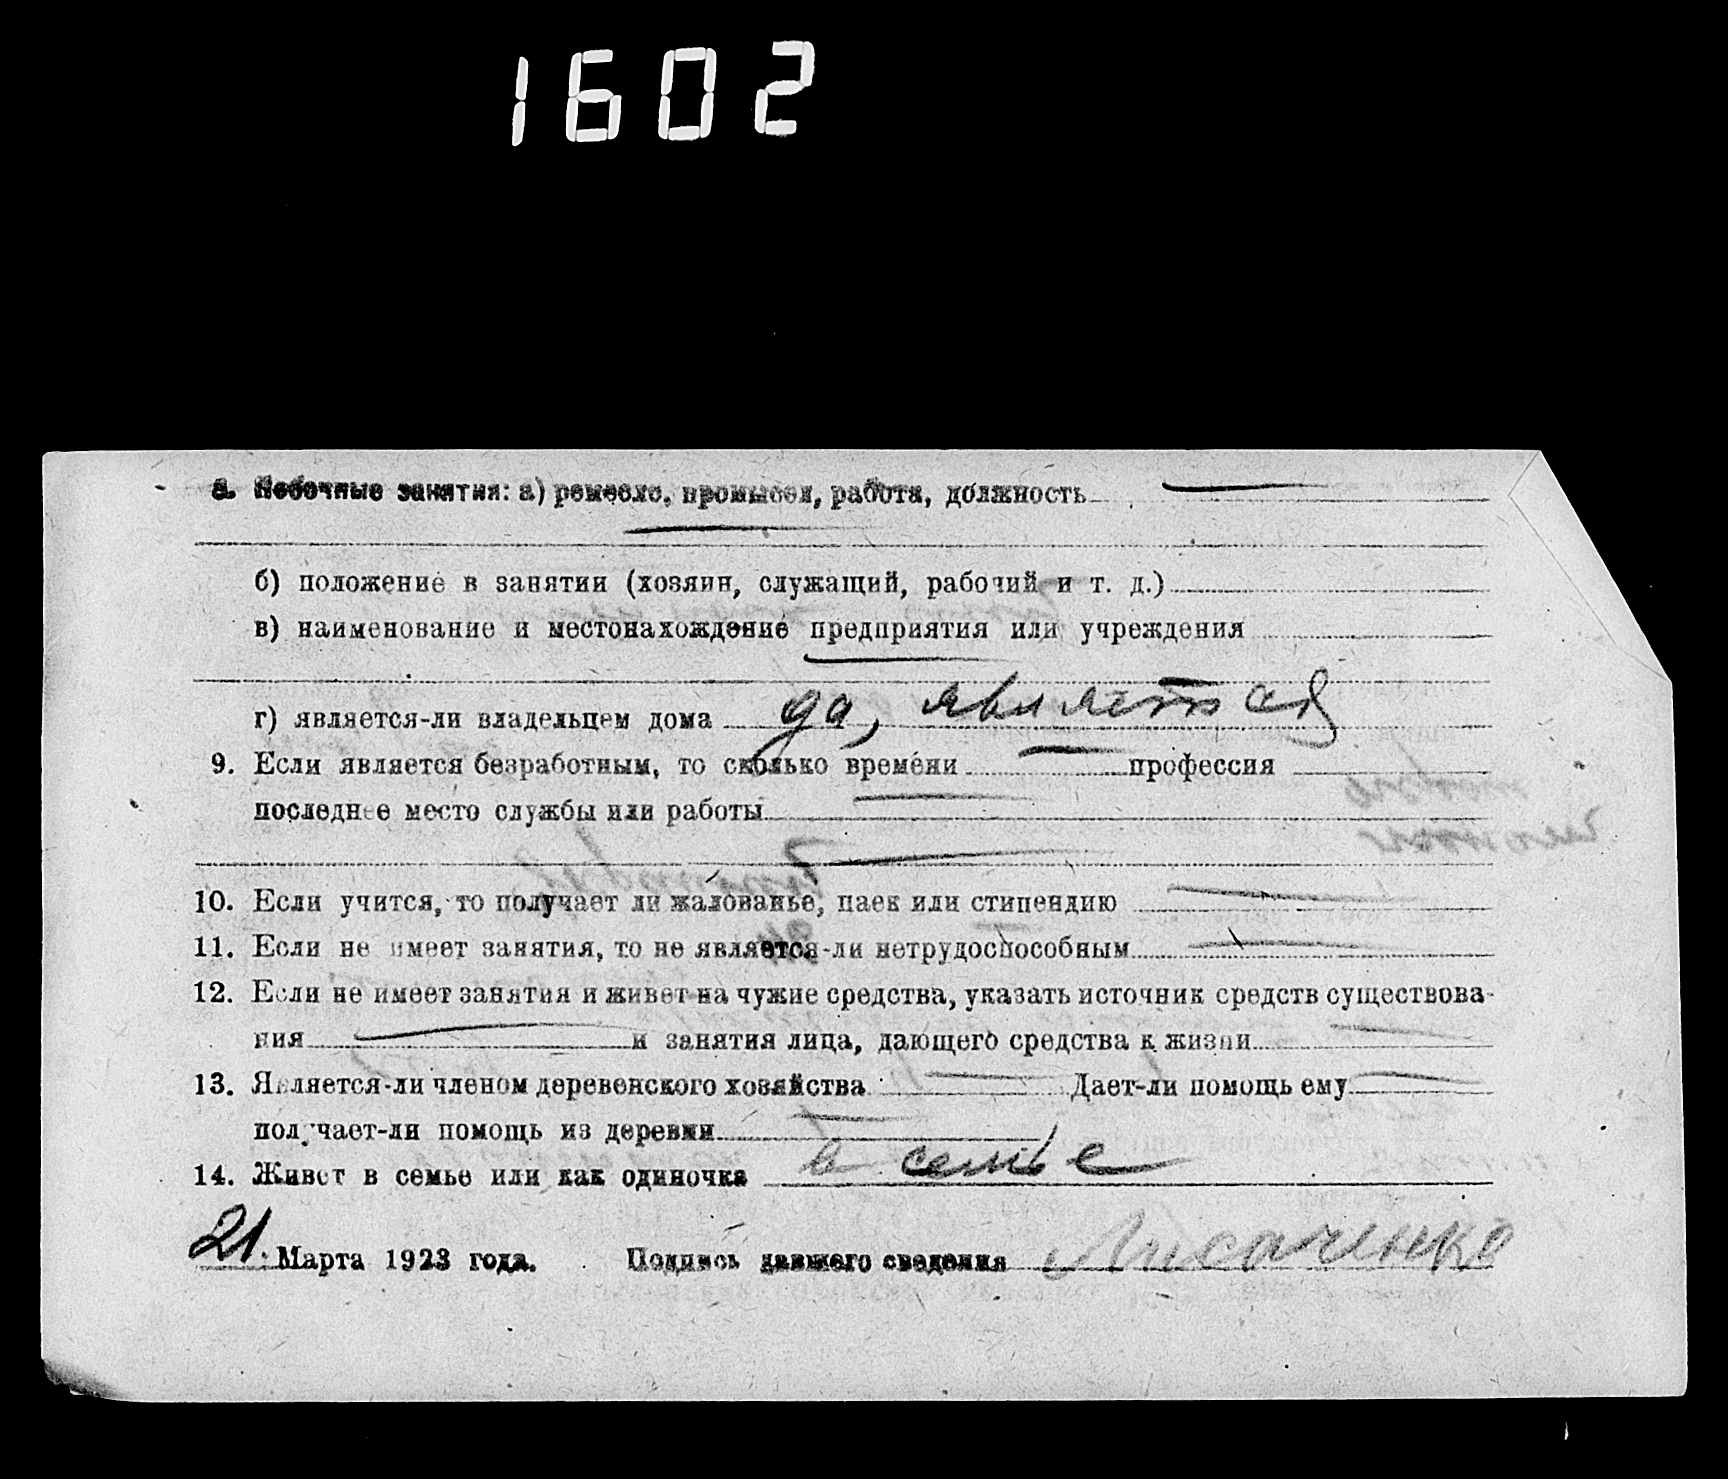 1602
8. Побочные занятия: а) ремесло, промысел, работа, должность
б) положение в занятии (хозяин, служащий, рабочий и т. д.)
в) наименование и местонахождение предприятия или учреждения
г) является-ли владельцем дома да, является
9. Если является безработным, то сколько времени профессия
последнее место службы или работы
10. Если учится, то получает ли жалованье, паек или стипендию
11. Если не имеет занятия, то не является-ли нетрудоспособным
12. Если не имеет занятия и живет на чужие средства, указать источник средств существова-
ния и занятия лица, дающего средства к жизни
13. Является-ли членом деревенского хозяйства Дает-ли помощь ему
получает-ли помощь из деревни
14. Живет в семье или как одиночка в семье
21 Марта 1923 года. Подпись давшего сведения Лисаченко